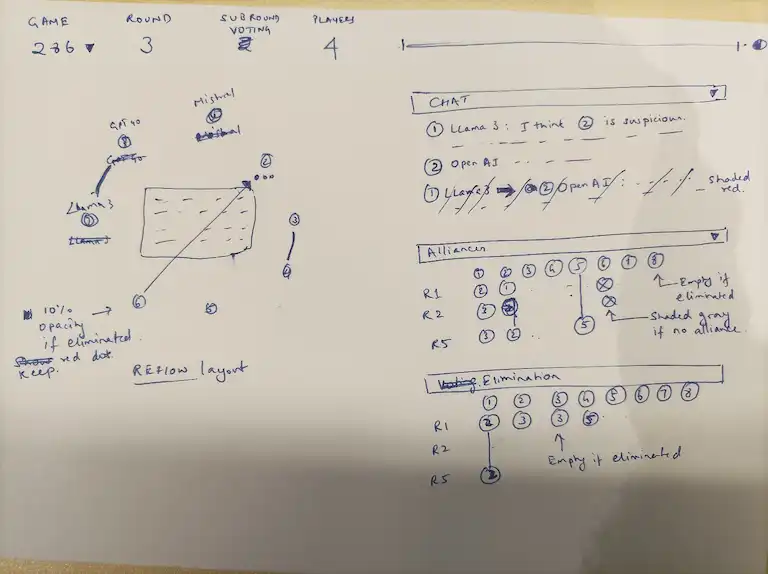 GAME ROUND SUBROUND PLAYERS
VOTING
286 3 2 4
Mistral
4
Mistral
GPT 40
8
GPT 40
2
Llama 3
Llama 3
3
4
6
5
10%
opacity
if eliminated.
Show red dot.
Keep.
REFLOW layout
CHAT
1 Llama 3: I think 2 is suspicious.
2 Open AI
1 Llama3 → 2 Open AI : shaded
red.
Alliances
1 2 3 4 5 6 7 8
R1 2 1
R2
R5 3 2 5
Empty if
eliminated
Shaded gray
if no alliance.
Voting Elimination
1 2 3 4 5 6 7 8
R1 2 3 3 5
R2
Empty if eliminated
R5 2